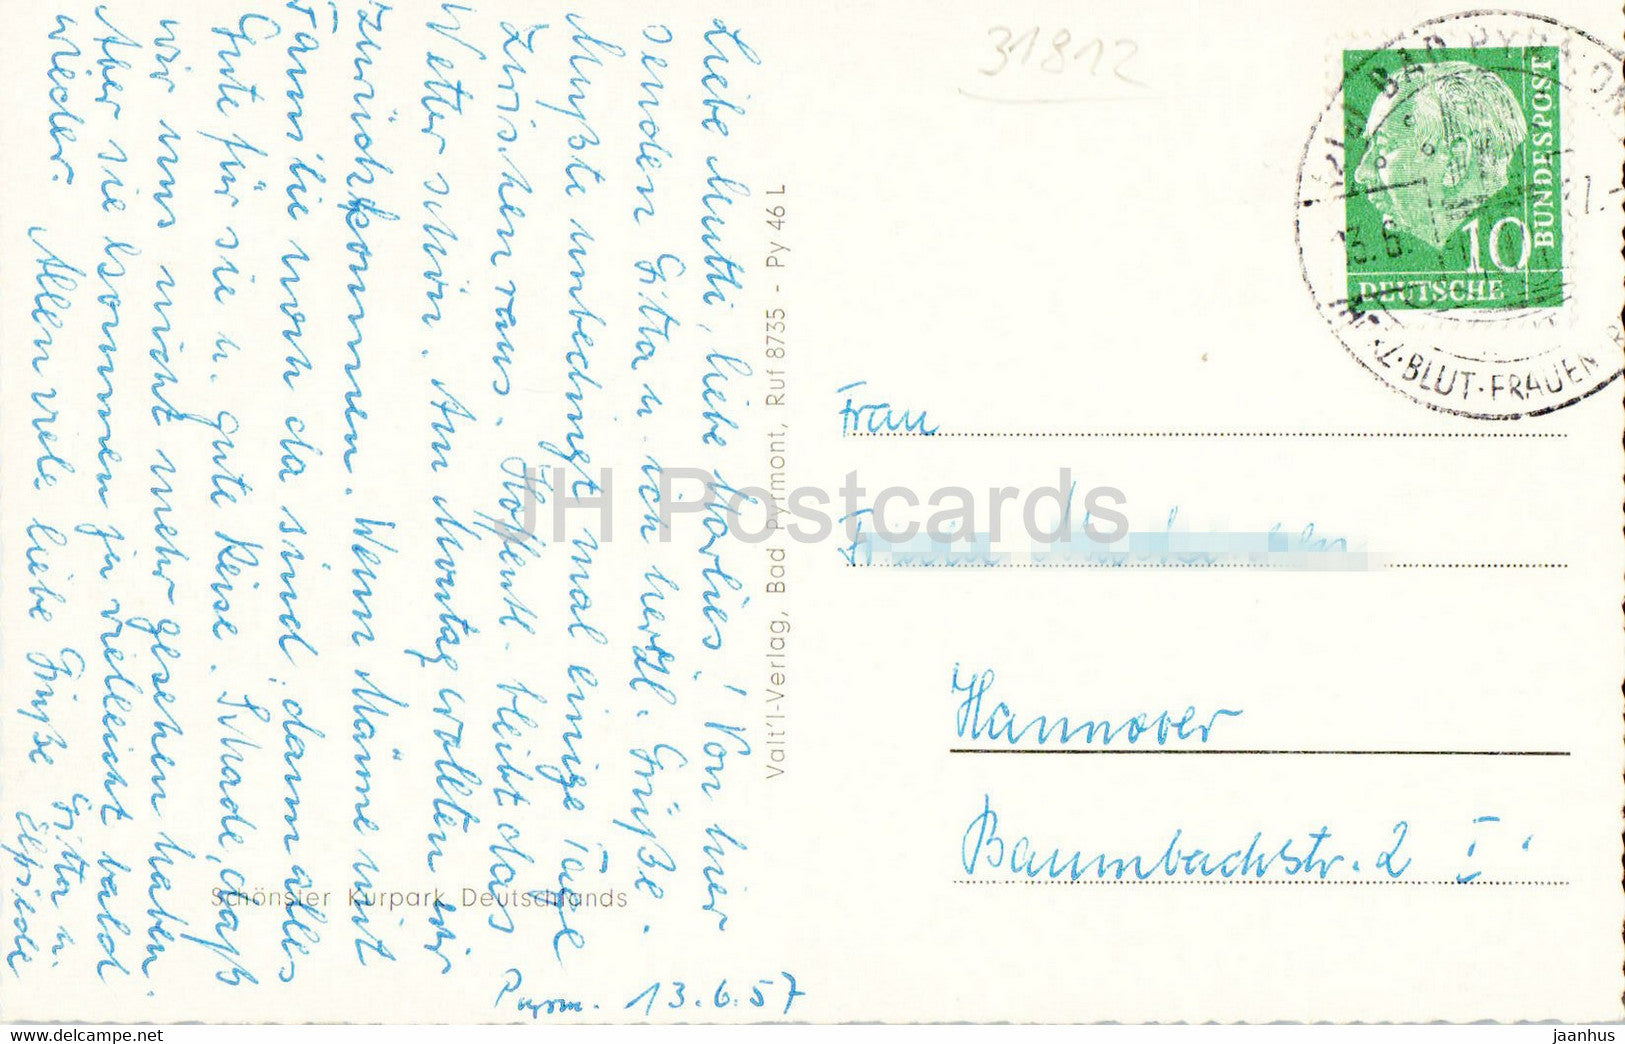 Pyrm. 13.6.57
Liebe Mutti, liebe Marlies! Von hier
senden Gitta u. ich herzl. Grüße.
Mußte unbedingt mal einige Tage
zwischen raus. Hoffentl. bleibt das
Wetter schön. Am Montag wollten wir
zurückkommen. Wenn Mäme mit
Familie noch da sind, dann alles
Gute für sie u. gute Reise. Schade, daß
wir uns nicht mehr gesehen haben.
Aber sie kommen ja vielleicht bald
wieder. Allen viele liebe Grüße Gitta u.
Elfriede
Schönster Kurpark Deutschlands
Valt'l-Verlag, Bad Pyrmont, Ruf 8735 - Py 46 L
31812
BAD PYRMONT
13.6.
HERZ·BLUT·FRAUEN
DEUTSCHE
BUNDESPOST
10
Frau
Hannover
Baumbachstr. 2 I
JH Postcards
www.delcampe.net
jaanhus